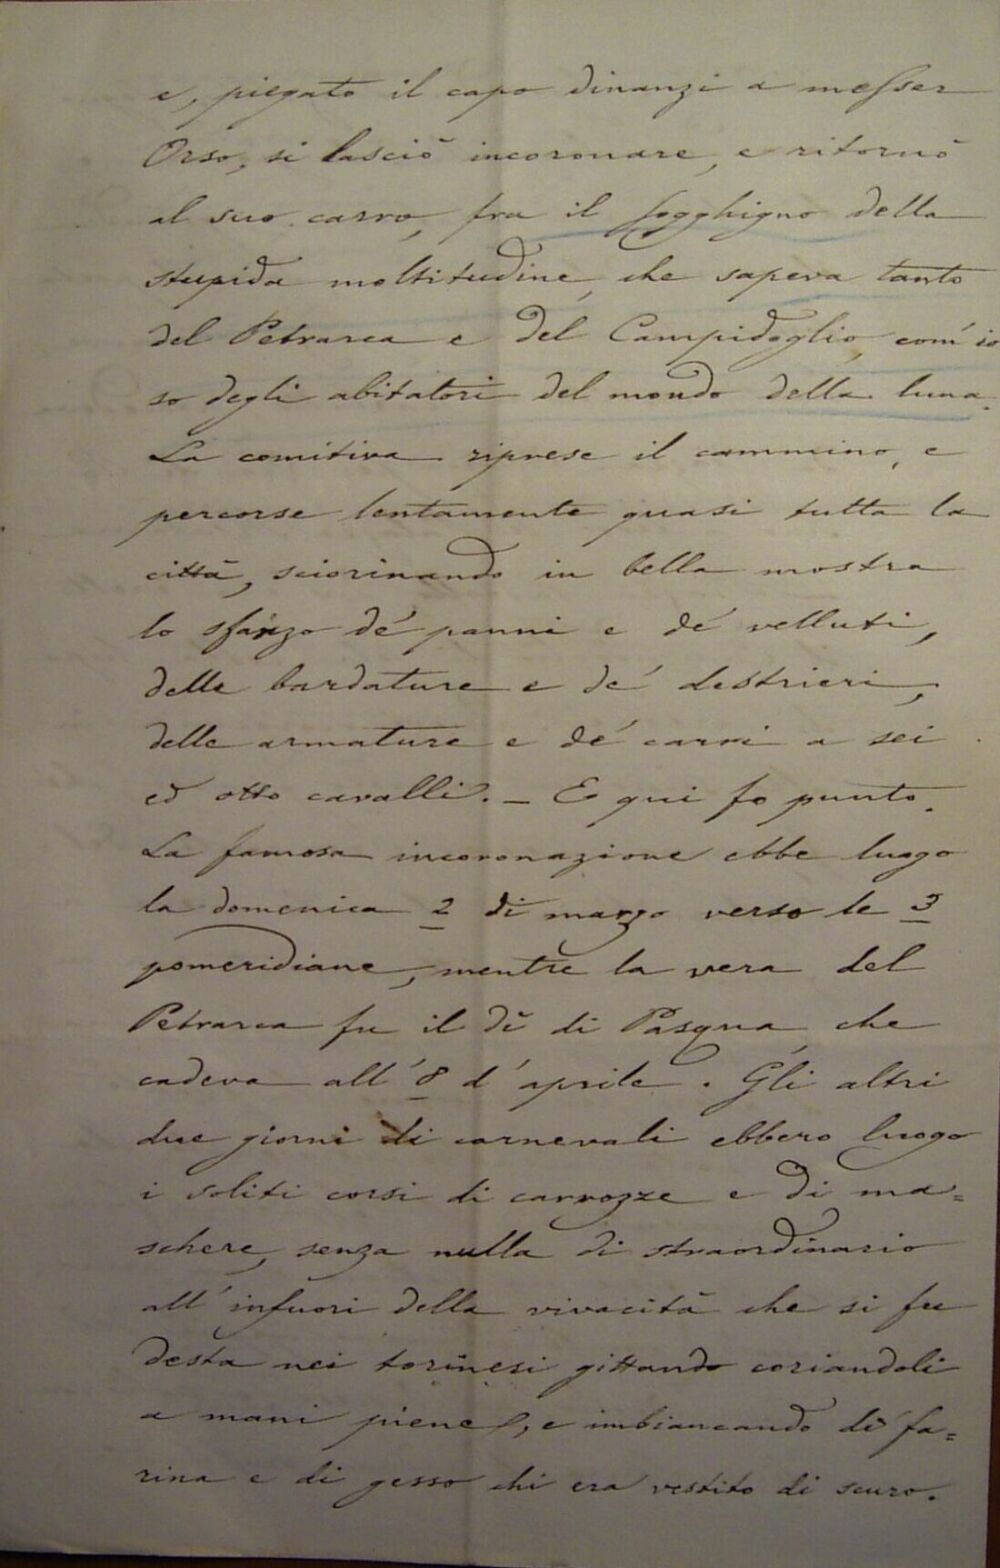 e, piegato il capo dinanzi a messer
Orso, si lasciò incoronare, e ritornò
al suo carro, fra il sogghigno della
stupida moltitudine, che sapeva tanto
del Petrarca e del Campidoglio, com'io
so degli abitatori del mondo della luna.
La comitiva riprese il cammino, e
percorse lentamente quasi tutta la
città, sciorinando in bella mostra
lo sfarzo de' panni e de' velluti,
delle bardature e de' destrieri,
delle armature e de' carri a sei
ed otto cavalli. — E qui fo punto.
La famosa incoronazione ebbe luogo
la domenica 2 di marzo verso le 3
pomeridiane, mentre la vera del
Petrarca fu il dì di Pasqua, che
cadeva all' 8 d'aprile. Gli altri
due giorni di carnevali ebbero luogo
i soliti corsi di carrozze e di ma=
schere, senza nulla di straordinario
all'infuori della vivacità che si fu
desta nei torinesi gittando coriandoli
a mani piene, e imbiancando di fa=
rina e di gesso chi era vestito di scuro.